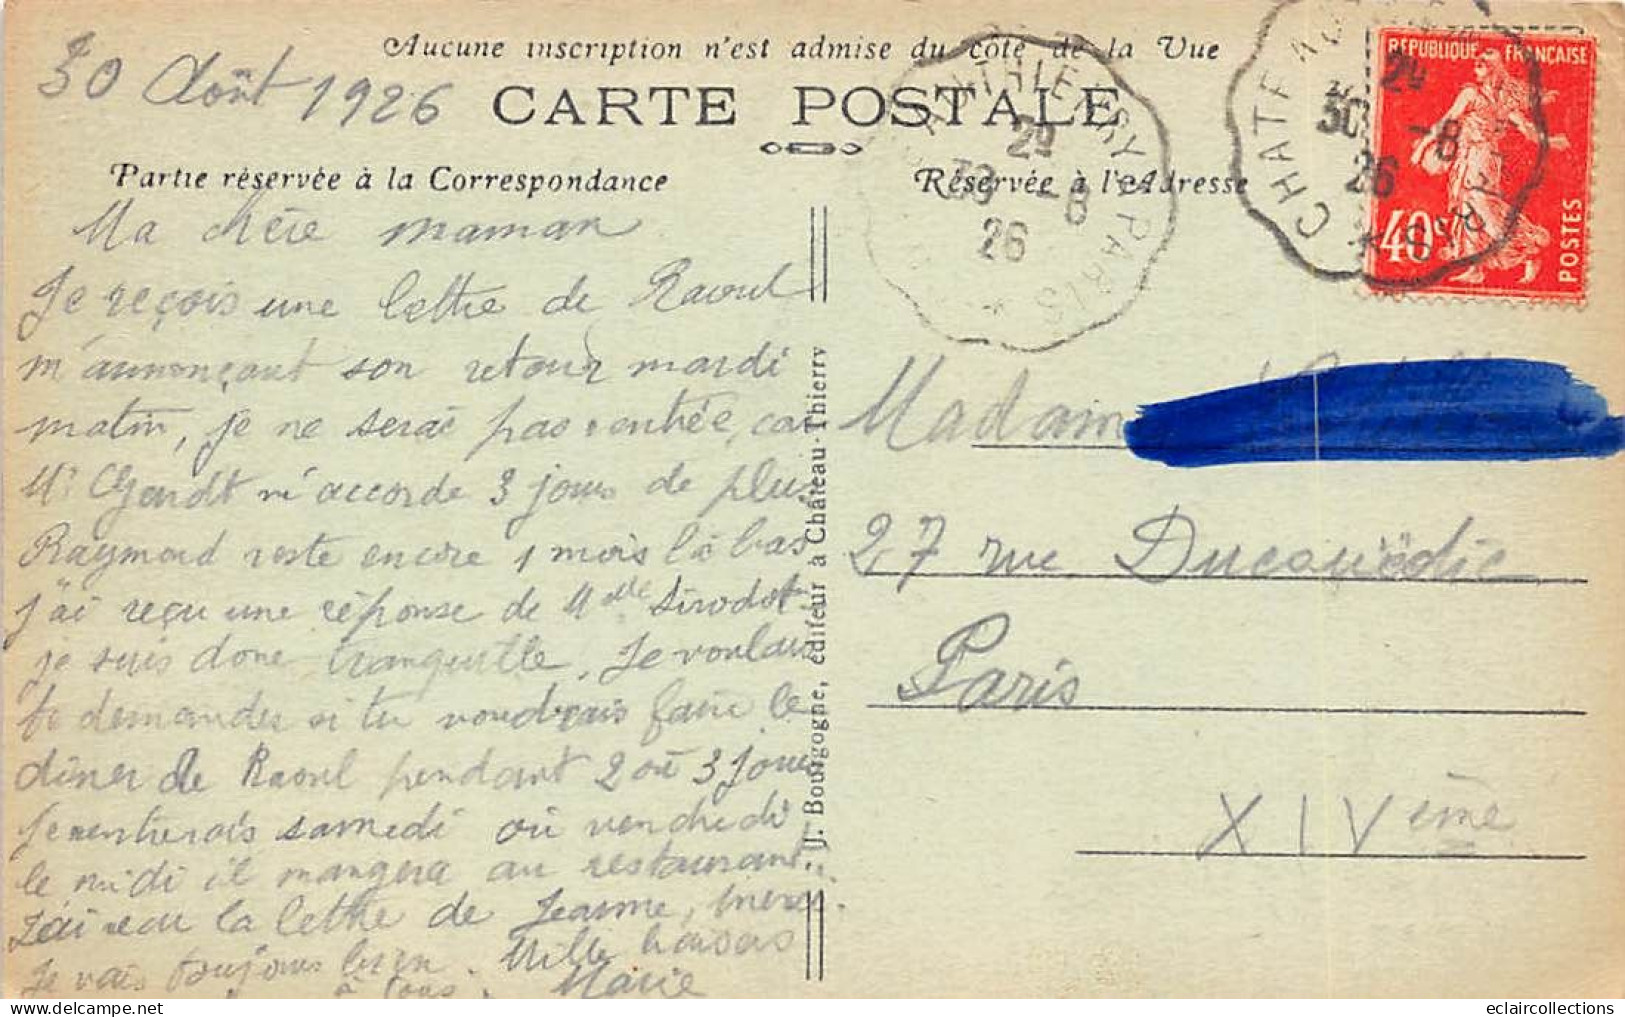 Aucune inscription n'est admise du côté de la Vue
30 Août 1926
CARTE POSTALE
Partie réservée à la Correspondance
Réservée à l'Adresse
Ma chère maman
Je reçois une lettre de Raoul
m'annonçant son retour mardi
matin, je ne serai pas rentrée, car
Mr Gendt m'accorde 3 jours de plus
Raymond reste encore 1 mois là bas
j'ai reçu une réponse de Melle Sirodot
je suis donc tranquille, Je voulais
te demander si tu voudrais faire le
dîner de Raoul pendant 2 ou 3 jours
Je rentrerais samedi ou vendredi
le midi il mangera au restaurant.
J'ai reçu la lettre de Jeanne, merci.
Je vais toujours bien. Mille baisers
à tous. Marie
J. Bourgogne, éditeur à Château-Thierry
29
30 -8
26
PARIS
CHATEAU
24
30 -8
26
PARIS
REPUBLIQUE FRANÇAISE
40c
POSTES
Madame
27 rue Ducouëdic
Paris
XIVème
eclaircollections